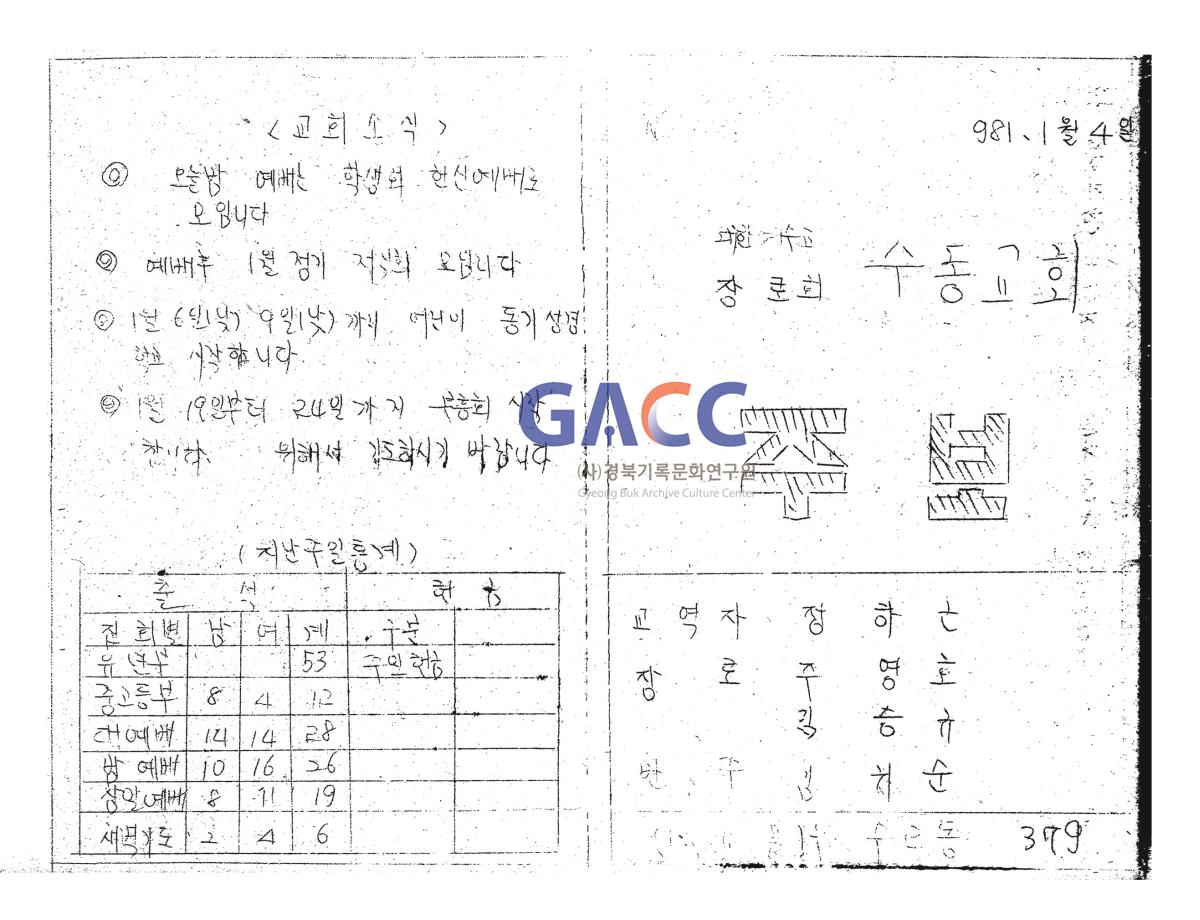 <교회소식>
◎ 오늘밤 예배는 학생회 헌신예배로
모입니다
◎ 예배후 1월 정기 제직회 모입니다
◎ 1월 6일(낮) 9일(낮)까지 어린이 동기성경
학교 시작합니다
◎ 1월 19일부터 24일까지 부흥회 시작
합니다. 위해서 기도하시기 바랍니다
(지난주일통계)
출석 헌금
집회별 남 여 계 구분
유년부 53 주일헌금
중고등부 8 4 12
대예배 14 14 28
밤예배 10 16 26
삼일예배 8 11 19
새벽기도 2 4 6
981. 1월 4일
대한예수교
장로회 수동교회
교역자 정하근
장로 주영호
김증규
반주
수동 379
GACC
(사)경북기록문화연구원
Gyeong Buk Archive Culture Center